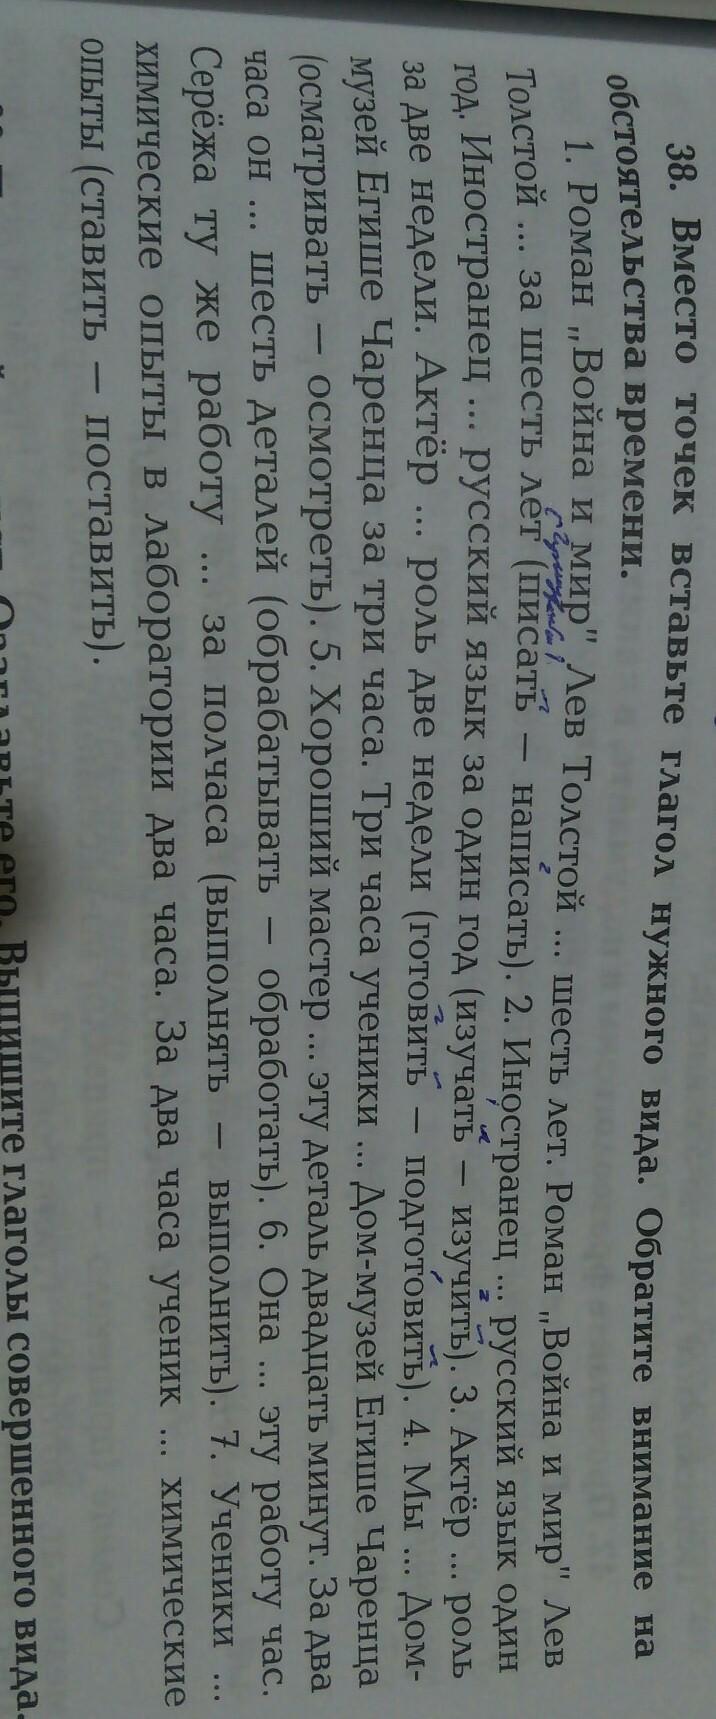 38. Вместо точек вставьте глагол нужного вида. Обратите внимание на
обстоятельства времени.
1. Роман „Война и мир" Лев Толстой ... шесть лет. Роман „Война и мир" Лев
Толстой ... за шесть лет (писать — написать). 2. Иностранец ... русский язык один
год. Иностранец ... русский язык за один год (изучать — изучить). 3. Актёр ... роль
за две недели. Актёр ... роль две недели (готовить — подготовить). 4. Мы ... Дом-
музей Егише Чаренца за три часа. Три часа ученики ... Дом-музей Егише Чаренца
(осматривать — осмотреть). 5. Хороший мастер ... эту деталь двадцать минут. За два
часа он ... шесть деталей (обрабатывать — обработать). 6. Она ... эту работу час.
Серёжа ту же работу ... за полчаса (выполнять — выполнить). 7. Ученики ...
химические опыты в лаборатории два часа. За два часа ученик ... химические
опыты (ставить — поставить).
Озаглавьте его. Выпишите глаголы совершенного вида.